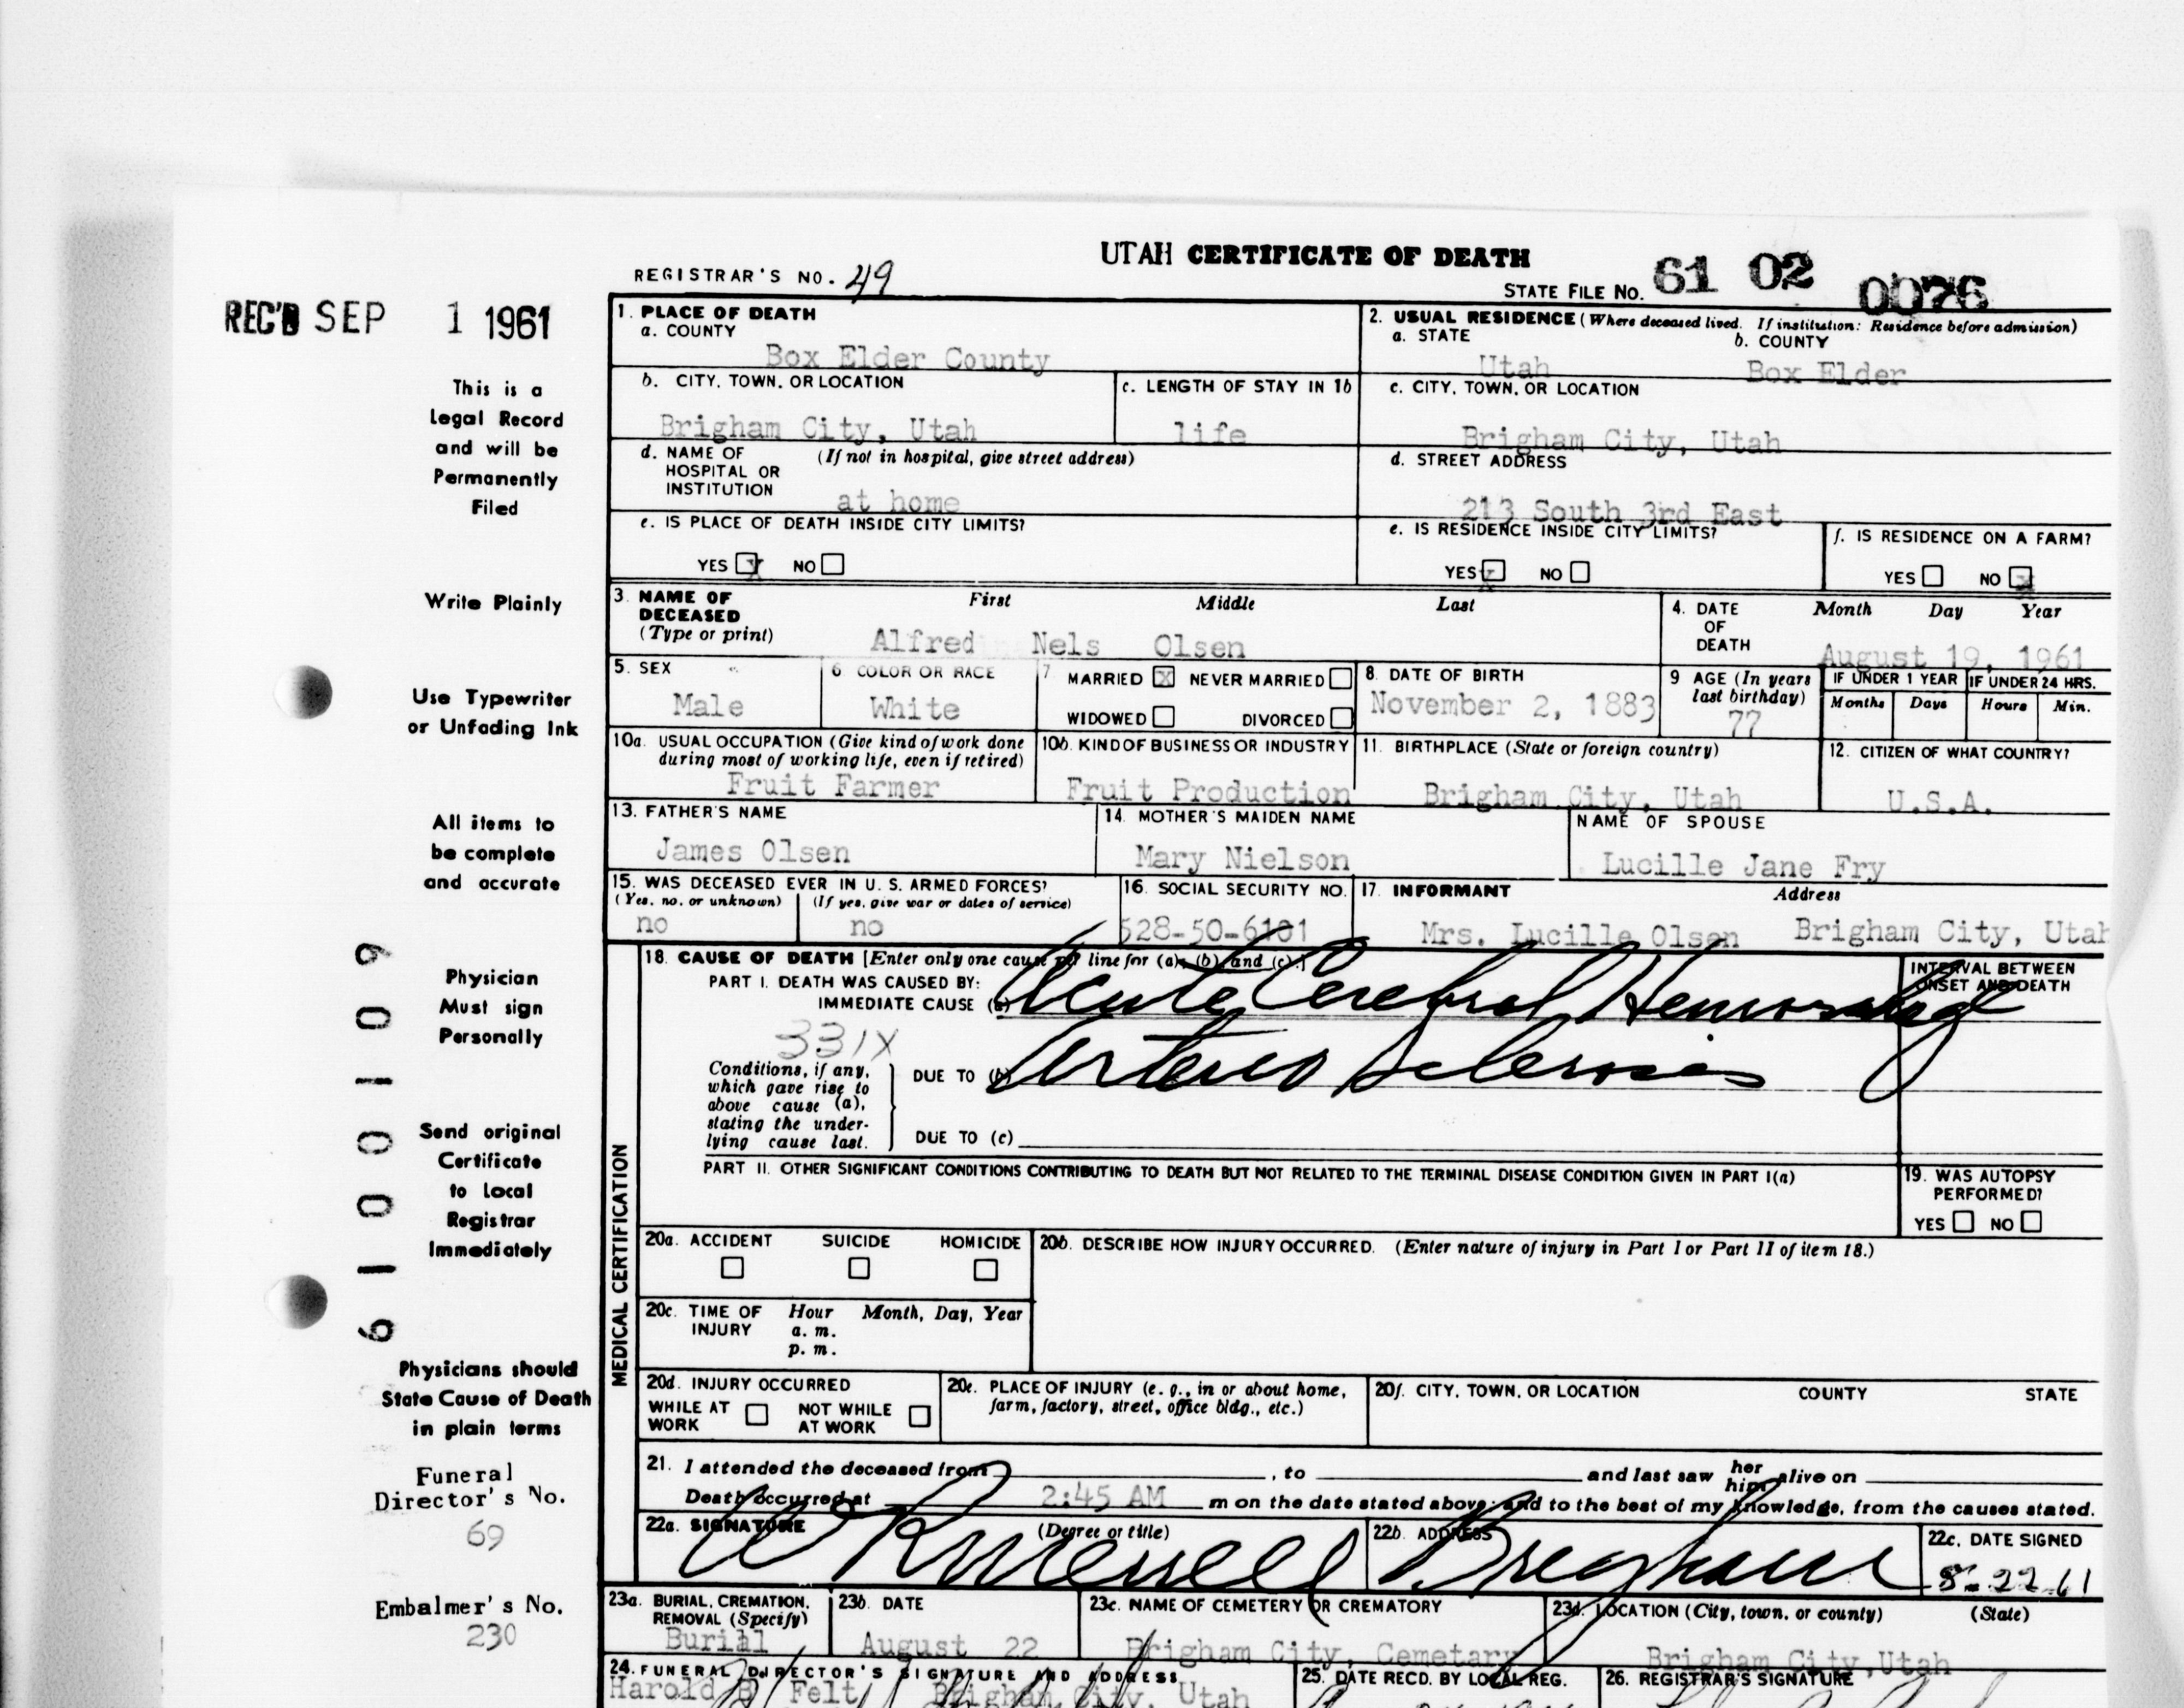 UTAH CERTIFICATE OF DEATH
REGISTRAR'S NO. 49
STATE FILE NO. 61 02 0076
REC'D SEP 1 1961
This is a
Legal Record
and will be
Permanently
Filed
Write Plainly
Use Typewriter
or Unfading Ink
All items to
be complete
and accurate
Physician
Must sign
Personally
Send original
Certificate
to Local
Registrar
Immediately
Physicians should
State Cause of Death
in plain terms
Funeral
Director's No.
69
Embalmer's No.
230
61001109
1. PLACE OF DEATH
a. COUNTY
Box Elder County
2. USUAL RESIDENCE (Where deceased lived. If institution: Residence before admission)
a. STATE b. COUNTY
Utah Box Elder
b. CITY, TOWN, OR LOCATION
Brigham City, Utah
c. LENGTH OF STAY IN 1b
life
c. CITY, TOWN, OR LOCATION
Brigham City, Utah
d. NAME OF (If not in hospital, give street address)
HOSPITAL OR
INSTITUTION
at home
d. STREET ADDRESS
213 South 3rd East
e. IS PLACE OF DEATH INSIDE CITY LIMITS?
YES X NO
e. IS RESIDENCE INSIDE CITY LIMITS?
YES X NO
f. IS RESIDENCE ON A FARM?
YES NO X
3. NAME OF First Middle Last
DECEASED
(Type or print) Alfred Nels Olsen
4. DATE Month Day Year
OF
DEATH August 19, 1961
5. SEX
Male
6 COLOR OR RACE
White
7 MARRIED X NEVER MARRIED
WIDOWED DIVORCED
8. DATE OF BIRTH
November 2, 1883
9 AGE (In years
last birthday)
77
IF UNDER 1 YEAR IF UNDER 24 HRS.
Months Days Hours Min.
10a. USUAL OCCUPATION (Give kind of work done
during most of working life, even if retired)
Fruit Farmer
10b. KIND OF BUSINESS OR INDUSTRY
Fruit Production
11. BIRTHPLACE (State or foreign country)
Brigham City, Utah
12. CITIZEN OF WHAT COUNTRY?
U.S.A.
13. FATHER'S NAME
James Olsen
14. MOTHER'S MAIDEN NAME
Mary Nielson
NAME OF SPOUSE
Lucille Jane Fry
15. WAS DECEASED EVER IN U. S. ARMED FORCES?
(Yes, no, or unknown) (If yes, give war or dates of service)
no no
16. SOCIAL SECURITY NO.
528-50-6101
17. INFORMANT Address
Mrs. Lucille Olsen Brigham City, Utah
MEDICAL CERTIFICATION
18. CAUSE OF DEATH [Enter only one cause per line for (a), (b) and (c).]
PART I. DEATH WAS CAUSED BY:
IMMEDIATE CAUSE (a) Acute Cerebral Hemorrhage
331X
INTERVAL BETWEEN
ONSET AND DEATH
Conditions, if any,
which gave rise to
above cause (a),
stating the under-
lying cause last.
DUE TO (b) Arterio Sclerosis
DUE TO (c)
PART II. OTHER SIGNIFICANT CONDITIONS CONTRIBUTING TO DEATH BUT NOT RELATED TO THE TERMINAL DISEASE CONDITION GIVEN IN PART I(a)
19. WAS AUTOPSY
PERFORMED?
YES NO
20a. ACCIDENT SUICIDE HOMICIDE
20b. DESCRIBE HOW INJURY OCCURRED. (Enter nature of injury in Part I or Part II of item 18.)
20c. TIME OF Hour Month, Day, Year
INJURY a. m.
p. m.
20d. INJURY OCCURRED
WHILE AT NOT WHILE
WORK AT WORK
20e. PLACE OF INJURY (e. g., in or about home,
farm, factory, street, office bldg., etc.)
20f. CITY, TOWN, OR LOCATION COUNTY STATE
21. I attended the deceased from , to and last saw her him alive on
Death occurred at 2:45 AM m on the date stated above; and to the best of my knowledge, from the causes stated.
22a. SIGNATURE (Degree or title)
22b. ADDRESS
Brigham
22c. DATE SIGNED
8-22-61
23a. BURIAL, CREMATION,
REMOVAL (Specify)
Burial
23b. DATE
August 22
23c. NAME OF CEMETERY OR CREMATORY
Brigham City, Cemetary
23d. LOCATION (City, town, or county) (State)
Brigham City, Utah
24. FUNERAL DIRECTOR'S SIGNATURE AND ADDRESS
Harold B Felt Brigham City, Utah
25. DATE RECD. BY LOCAL REG.
26. REGISTRAR'S SIGNATURE